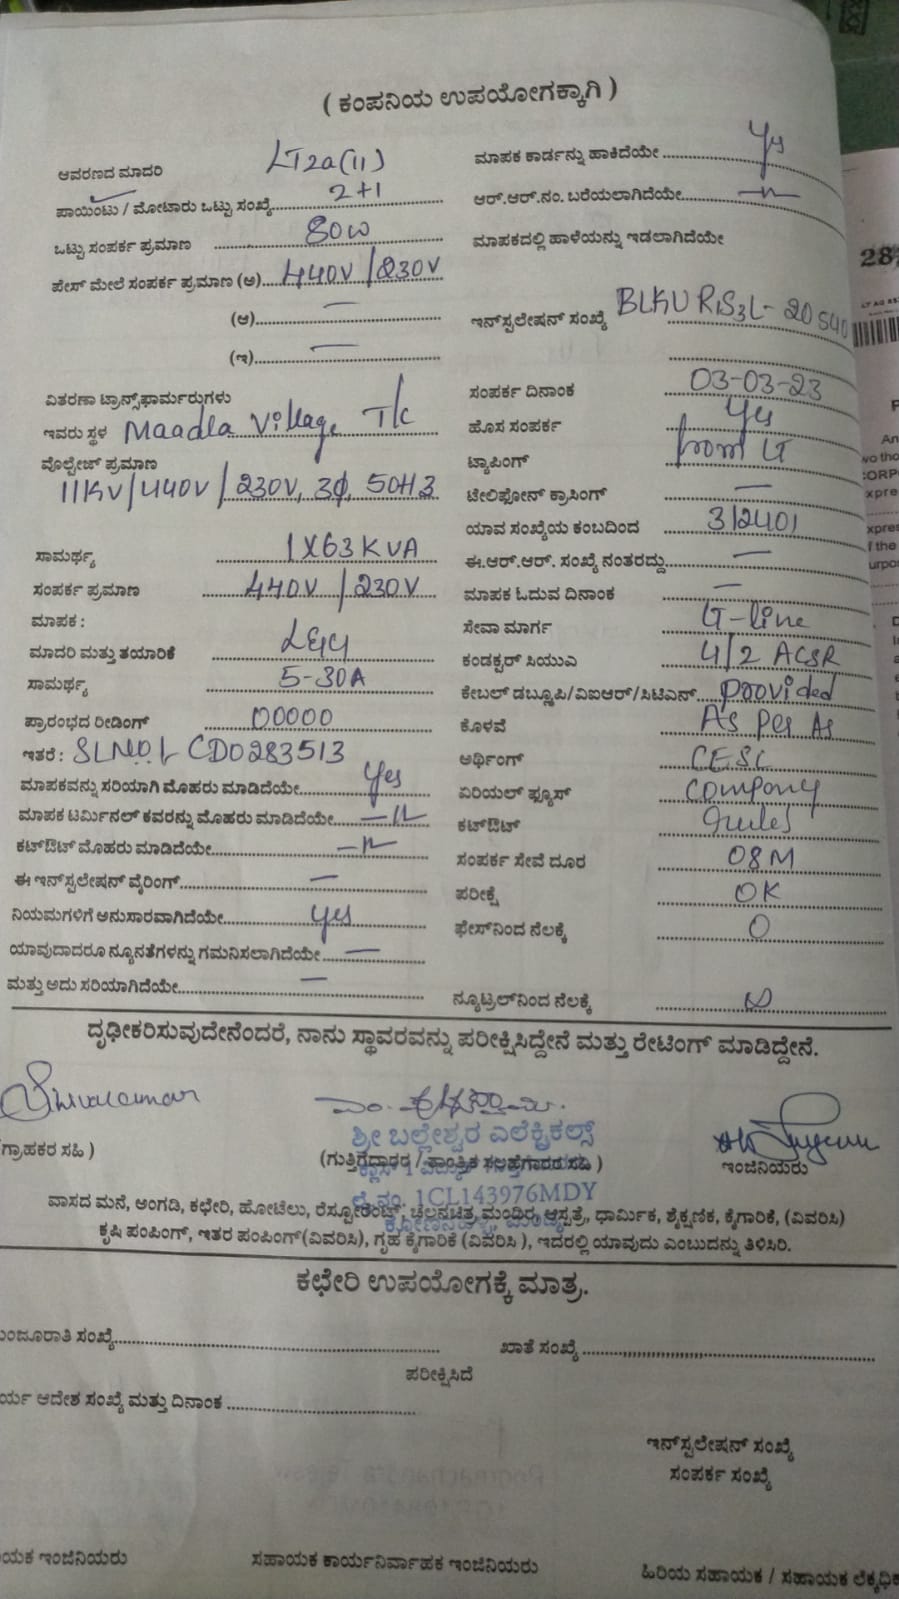 ( ಕಂಪನಿಯ ಉಪಯೋಗಕ್ಕಾಗಿ )
ಆವರಣದ ಮಾದರಿ LT2a(11)
ಪಾಯಿಂಟು / ಮೋಟಾರು ಒಟ್ಟು ಸಂಖ್ಯೆ 2+1
ಒಟ್ಟು ಸಂಪರ್ಕ ಪ್ರಮಾಣ 80W
ಫೇಸ್ ಮೇಲೆ ಸಂಪರ್ಕ ಪ್ರಮಾಣ (ಅ) 440V /230V
(ಆ) —
(ಇ) —
ವಿತರಣಾ ಟ್ರಾನ್ಸ್‌ಫಾರ್ಮರುಗಳು
ಇವರು ಸ್ಥಳ Maadla Village T/c
ವೋಲ್ಟೇಜ್ ಪ್ರಮಾಣ
11KV/440V/230V, 3φ, 50H3
ಸಾಮರ್ಥ್ಯ 1X63KVA
ಸಂಪರ್ಕ ಪ್ರಮಾಣ 440V /230V
ಮಾಪಕ :
ಮಾದರಿ ಮತ್ತು ತಯಾರಿಕೆ L&G
ಸಾಮರ್ಥ್ಯ 5-30A
ಪ್ರಾರಂಭದ ರೀಡಿಂಗ್ 00000
ಇತರೆ : SLNO: CD0283513
ಮಾಪಕವನ್ನು ಸರಿಯಾಗಿ ಮೊಹರು ಮಾಡಿದೆಯೇ Yes
ಮಾಪಕ ಟರ್ಮಿನಲ್ ಕವರನ್ನು ಮೊಹರು ಮಾಡಿದೆಯೇ —11—
ಕಟ್‌ಔಟ್ ಮೊಹರು ಮಾಡಿದೆಯೇ —11—
ಈ ಇನ್‌ಸ್ಟಲೇಷನ್ ವೈರಿಂಗ್ —
ನಿಯಮಗಳಿಗೆ ಅನುಸಾರವಾಗಿದೆಯೇ Yes
ಯಾವುದಾದರೂ ನ್ಯೂನತೆಗಳನ್ನು ಗಮನಿಸಲಾಗಿದೆಯೇ —
ಮತ್ತು ಅದು ಸರಿಯಾಗಿದೆಯೇ —
ಮಾಪಕ ಕಾರ್ಡನ್ನು ಹಾಕಿದೆಯೇ Yes
ಆರ್.ಆರ್.ನಂ. ಬರೆಯಲಾಗಿದೆಯೇ —11—
ಮಾಪಕದಲ್ಲಿ ಹಾಳೆಯನ್ನು ಇಡಲಾಗಿದೆಯೇ
ಇನ್‌ಸ್ಟಲೇಷನ್ ಸಂಖ್ಯೆ BLKURS3L-20540
ಸಂಪರ್ಕ ದಿನಾಂಕ 03-03-23
ಹೊಸ ಸಂಪರ್ಕ Yes
ಟ್ಯಾಪಿಂಗ್ from LT
ಟೇಲಿಫೋನ್ ಕ್ರಾಸಿಂಗ್ —
ಯಾವ ಸಂಖ್ಯೆಯ ಕಂಬದಿಂದ 312401
ಈ.ಆರ್.ಆರ್. ಸಂಖ್ಯೆ ನಂತರದ್ದು —
ಮಾಪಕ ಓದುವ ದಿನಾಂಕ —
ಸೇವಾ ಮಾರ್ಗ LT-line
ಕಂಡಕ್ಟರ್ ಸಿಯುಎ 4/2 ACSR
ಕೇಬಲ್ ಡಬ್ಲೂಪಿ/ವಿಐಆರ್/ಸಿಟಿಎಸ್ provided
ಕೊಳವೆ As per As
ಅರ್ಥಿಂಗ್ CESC
ಏರಿಯಲ್ ಫ್ಯೂಸ್ Company
ಕಟ್‌ಔಟ್ rules
ಸಂಪರ್ಕ ಸೇವೆ ದೂರ 08M
ಪರೀಕ್ಷೆ OK
ಫೇಸ್‌ನಿಂದ ನೆಲಕ್ಕೆ 0
ನ್ಯೂಟ್ರಲ್‌ನಿಂದ ನೆಲಕ್ಕೆ
ದೃಢೀಕರಿಸುವುದೇನೆಂದರೆ, ನಾನು ಸ್ಥಾವರವನ್ನು ಪರೀಕ್ಷಿಸಿದ್ದೇನೆ ಮತ್ತು ರೇಟಿಂಗ್ ಮಾಡಿದ್ದೇನೆ.
Shivakumar
ಗ್ರಾಹಕರ ಸಹಿ )
ಶ್ರೀ ಬಲ್ಲೇಶ್ವರ ಎಲೆಕ್ಟ್ರಿಕಲ್ಸ್
(ಗುತ್ತಿಗೆದಾರರ / ತಾಂತ್ರಿಕ ಸಲಹೆಗಾರರ ಸಹಿ )
ಇಂಜಿನಿಯರು
ಲೈ.ನಂ. 1CL143976MDY
ವಾಸದ ಮನೆ, ಅಂಗಡಿ, ಕಛೇರಿ, ಹೋಟೆಲು, ರೆಸ್ಟೋರೆಂಟ್, ಚಲನಚಿತ್ರ, ಮಂದಿರ, ಆಸ್ಪತ್ರೆ, ಧಾರ್ಮಿಕ, ಶೈಕ್ಷಣಿಕ, ಕೈಗಾರಿಕೆ, (ವಿವರಿಸಿ)
ಕೃಷಿ ಪಂಪಿಂಗ್, ಇತರ ಪಂಪಿಂಗ್(ವಿವರಿಸಿ), ಗೃಹ ಕೈಗಾರಿಕೆ (ವಿವರಿಸಿ ), ಇದರಲ್ಲಿ ಯಾವುದು ಎಂಬುದನ್ನು ತಿಳಿಸಿರಿ.
ಕಛೇರಿ ಉಪಯೋಗಕ್ಕೆ ಮಾತ್ರ.
ಮಂಜೂರಾತಿ ಸಂಖ್ಯೆ
ಖಾತೆ ಸಂಖ್ಯೆ
ಪರೀಕ್ಷಿಸಿದೆ
ರ್ಯ ಆದೇಶ ಸಂಖ್ಯೆ ಮತ್ತು ದಿನಾಂಕ
ಇನ್‌ಸ್ಟಲೇಷನ್ ಸಂಖ್ಯೆ
ಸಂಪರ್ಕ ಸಂಖ್ಯೆ
ಯಕ ಇಂಜಿನಿಯರು
ಸಹಾಯಕ ಕಾರ್ಯನಿರ್ವಾಹಕ ಇಂಜಿನಿಯರು
ಹಿರಿಯ ಸಹಾಯಕ / ಸಹಾಯಕ ಲೆಕ್ಕಾಧಿಕ